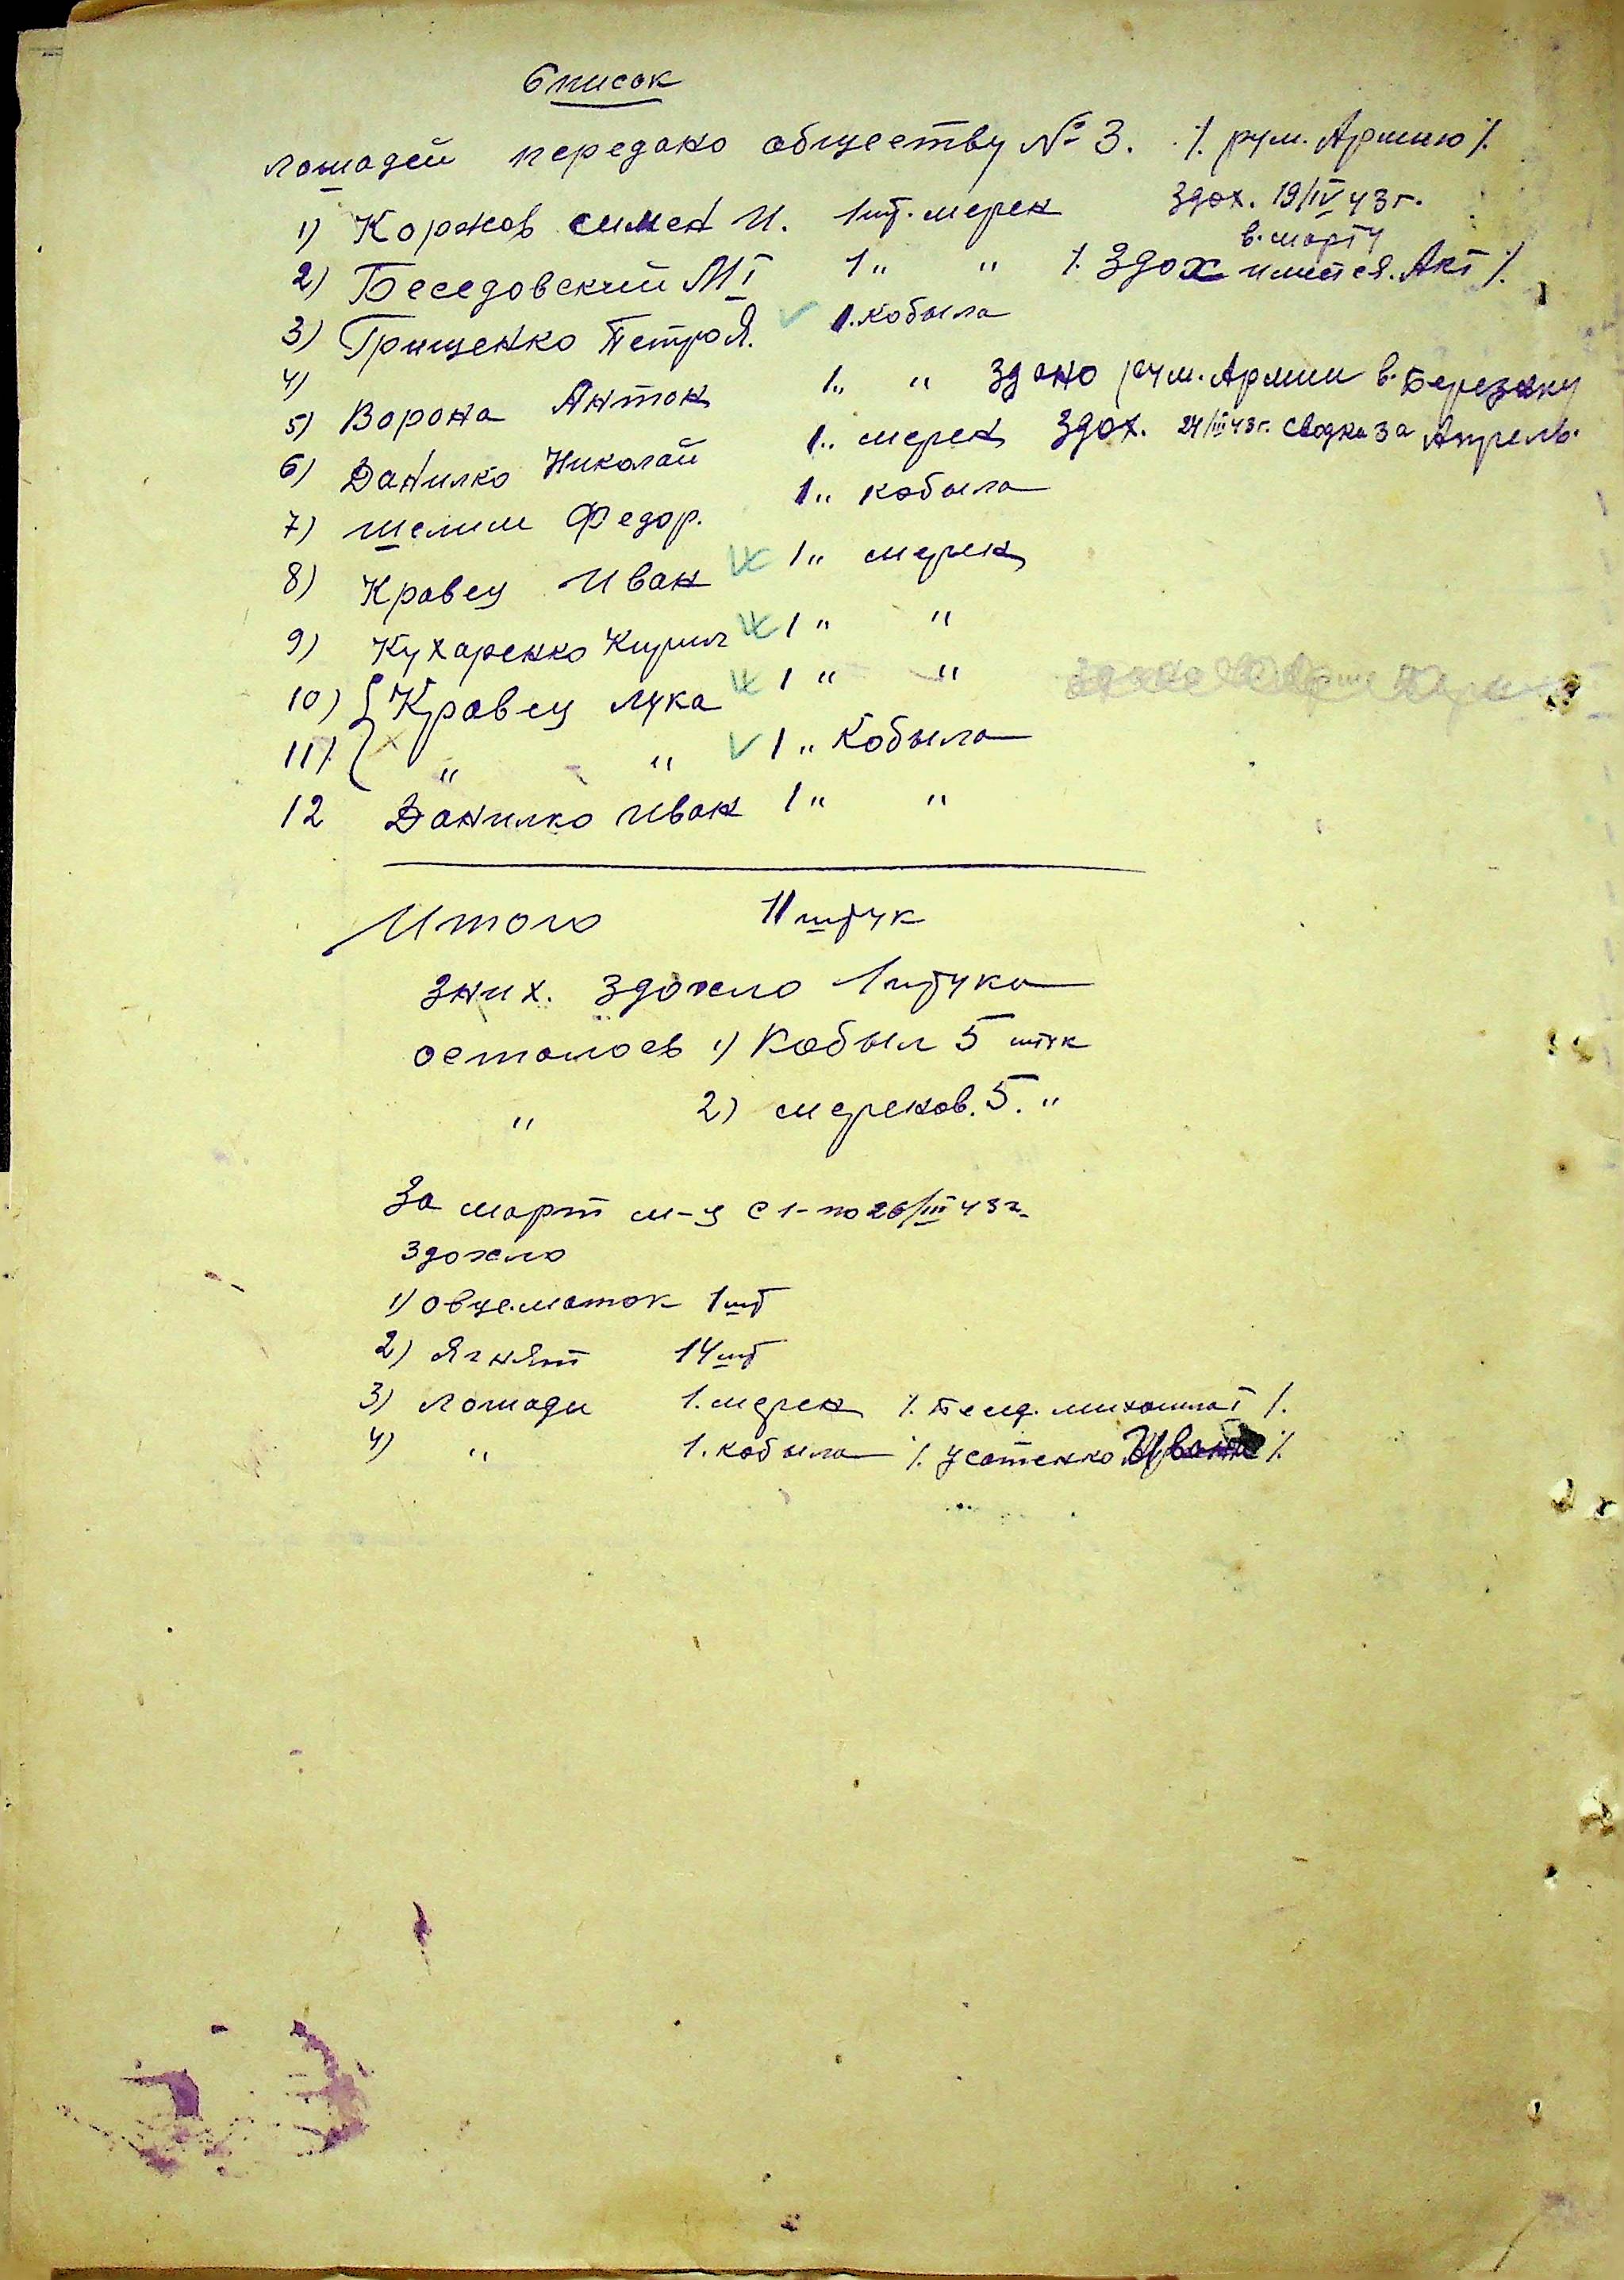 Список
лошадей передано обществу № 3. ٪ рум. Армию ٪
1) Коржов симен И. 1шт. мерен здох. 19/IV 43 г.
2) Беседовский М I 1 „ „ ٪ Здох в. марту имется. Акт ٪
3) Грищенко Петро Я. 1. кобыла
4)
5) Ворона Антон 1 „ „ здано рум. Армии в. Березанку
6) Данилко Николай 1 „ мерен здох. 24/III 43 г. Сводка за Апрель.
7) шелим Федор. 1 „ кобыла
8) Кравец Иван 1 „ мерен
9) Кухаренко Кирил 1 „ „
10) Кравец лука 1 „ „
11) „ „ 1 „ кобыла
12 Данилко иван 1 „ „
Итого 11 штук
зних. здохло 1 штука
осталось 1) Кобыл 5 штук
„ 2) меренов. 5. „
За март м-ц с 1-по 26/III 43 г.
здохло
1) овцематок 1 шт
2) Ягнят 14 шт
3) лошади 1. мерен ٪ Бесед. михаил I ٪
4) „ 1. кобыла ٪ Усатенко Ивана ٪